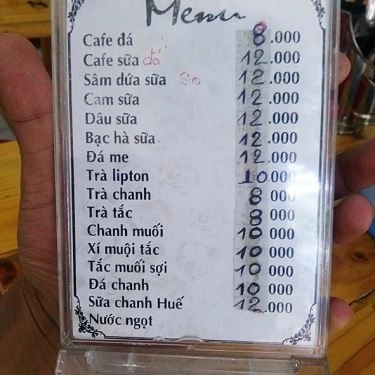 Menu
Cafe đá 8.000
Cafe sữa đá 12.000
Sâm dứa sữa 12.000
Cam sữa 12.000
Dâu sữa 12.000
Bạc hà sữa 12.000
Đá me 12.000
Trà lipton 10 000
Trà chanh 8 000
Trà tắc 8 000
Chanh muối 10 000
Xí muội tắc 10 000
Tắc muối sợi 10 000
Đá chanh 10 000
Sữa chanh Huế 12.000
Nước ngọt